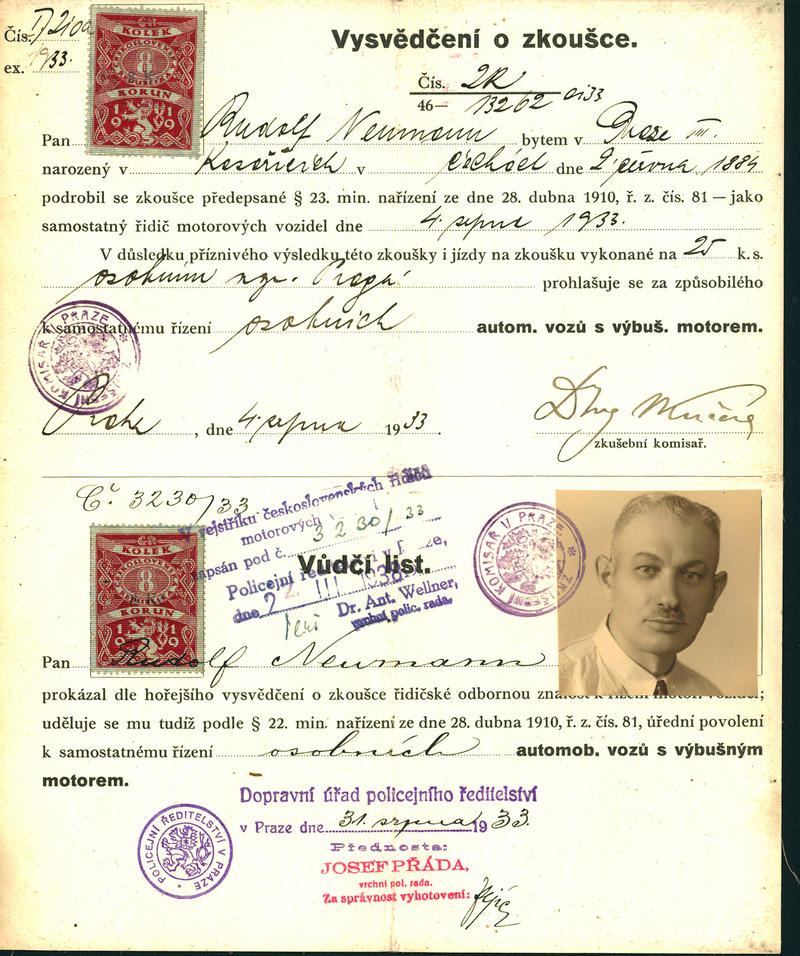 Čís.
ex. 1933.
KOLEK
8
KORUN
1919
Vysvědčení o zkoušce.
Čís. 2R
46— 13262
Pan Rudolf Neumann bytem v Praze III.
narozený v v dne 2 června 1884
podrobil se zkoušce předepsané § 23. min. nařízení ze dne 28. dubna 1910, ř. z. čís. 81 — jako
samostatný řidič motorových vozidel dne 4. srpna 1933.
V důsledku příznivého výsledku této zkoušky i jízdy na zkoušku vykonané na 25 k. s.
osobním Praga prohlašuje se za způsobilého
k samostatnému řízení osobních autom. vozů s výbuš. motorem.
ZKUŠEBNÍ KOMISAŘ V PRAZE
, dne 4. srpna 1933.
zkušební komisař.
Č. 3230/33
V rejstříku československých řidičů
motorových
zapsán pod č. 3230/33
Policejní
dne 22 III 1938
Dr. Ant. Wellner,
vrchní polic. rada.
KOLEK
8
KORUN
1919
Vůdčí list.
ZKUŠEBNÍ KOMISAŘ V PRAZE
Pan Rudolf Neumann
prokázal dle hořejšího vysvědčení o zkoušce řidičské odbornou znalost k řízení motor. vozidel;
uděluje se mu tudíž podle § 22. min. nařízení ze dne 28. dubna 1910, ř. z. čís. 81, úřední povolení
k samostatnému řízení osobních automob. vozů s výbušným
motorem.
Dopravní úřad policejního ředitelství
v Praze dne 31. srpna 1933.
POLICEJNÍ ŘEDITELSTVÍ V PRAZE
Přednosta:
JOSEF PŘÁDA,
vrchní pol. rada.
Za správnost vyhotovení: